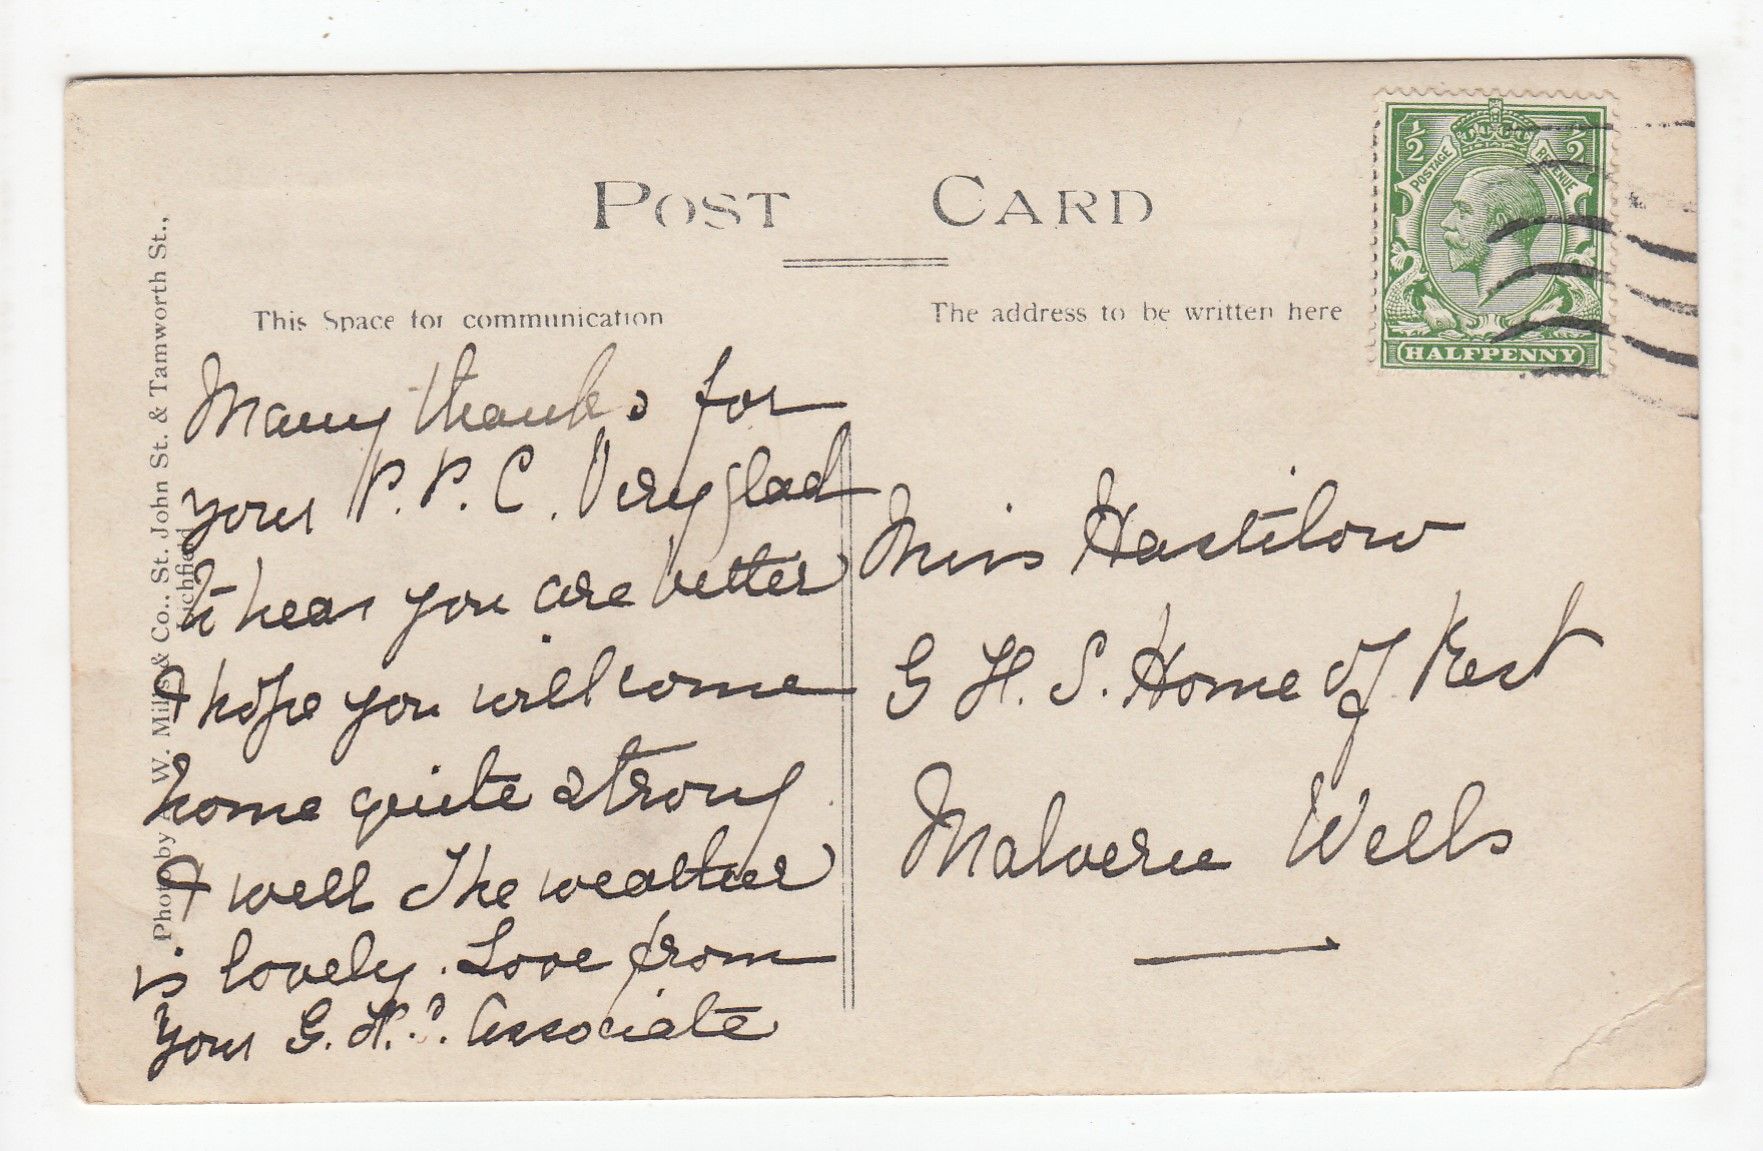 POST CARD
This Space for communication
The address to be written here
½ ½
POSTAGE REVENUE
HALFPENNY
Photo by A. W. Mills & Co., St. John St. & Tamworth St.,
Lichfield
Many thanks for
your P. P. C. Very glad
to hear you are better
& hope you will come
home quite strong
& well The weather
is lovely. Love from
your G. F. S. Associate
Miss Hastilow
G F. S. Home of Rest
Malvern Wells